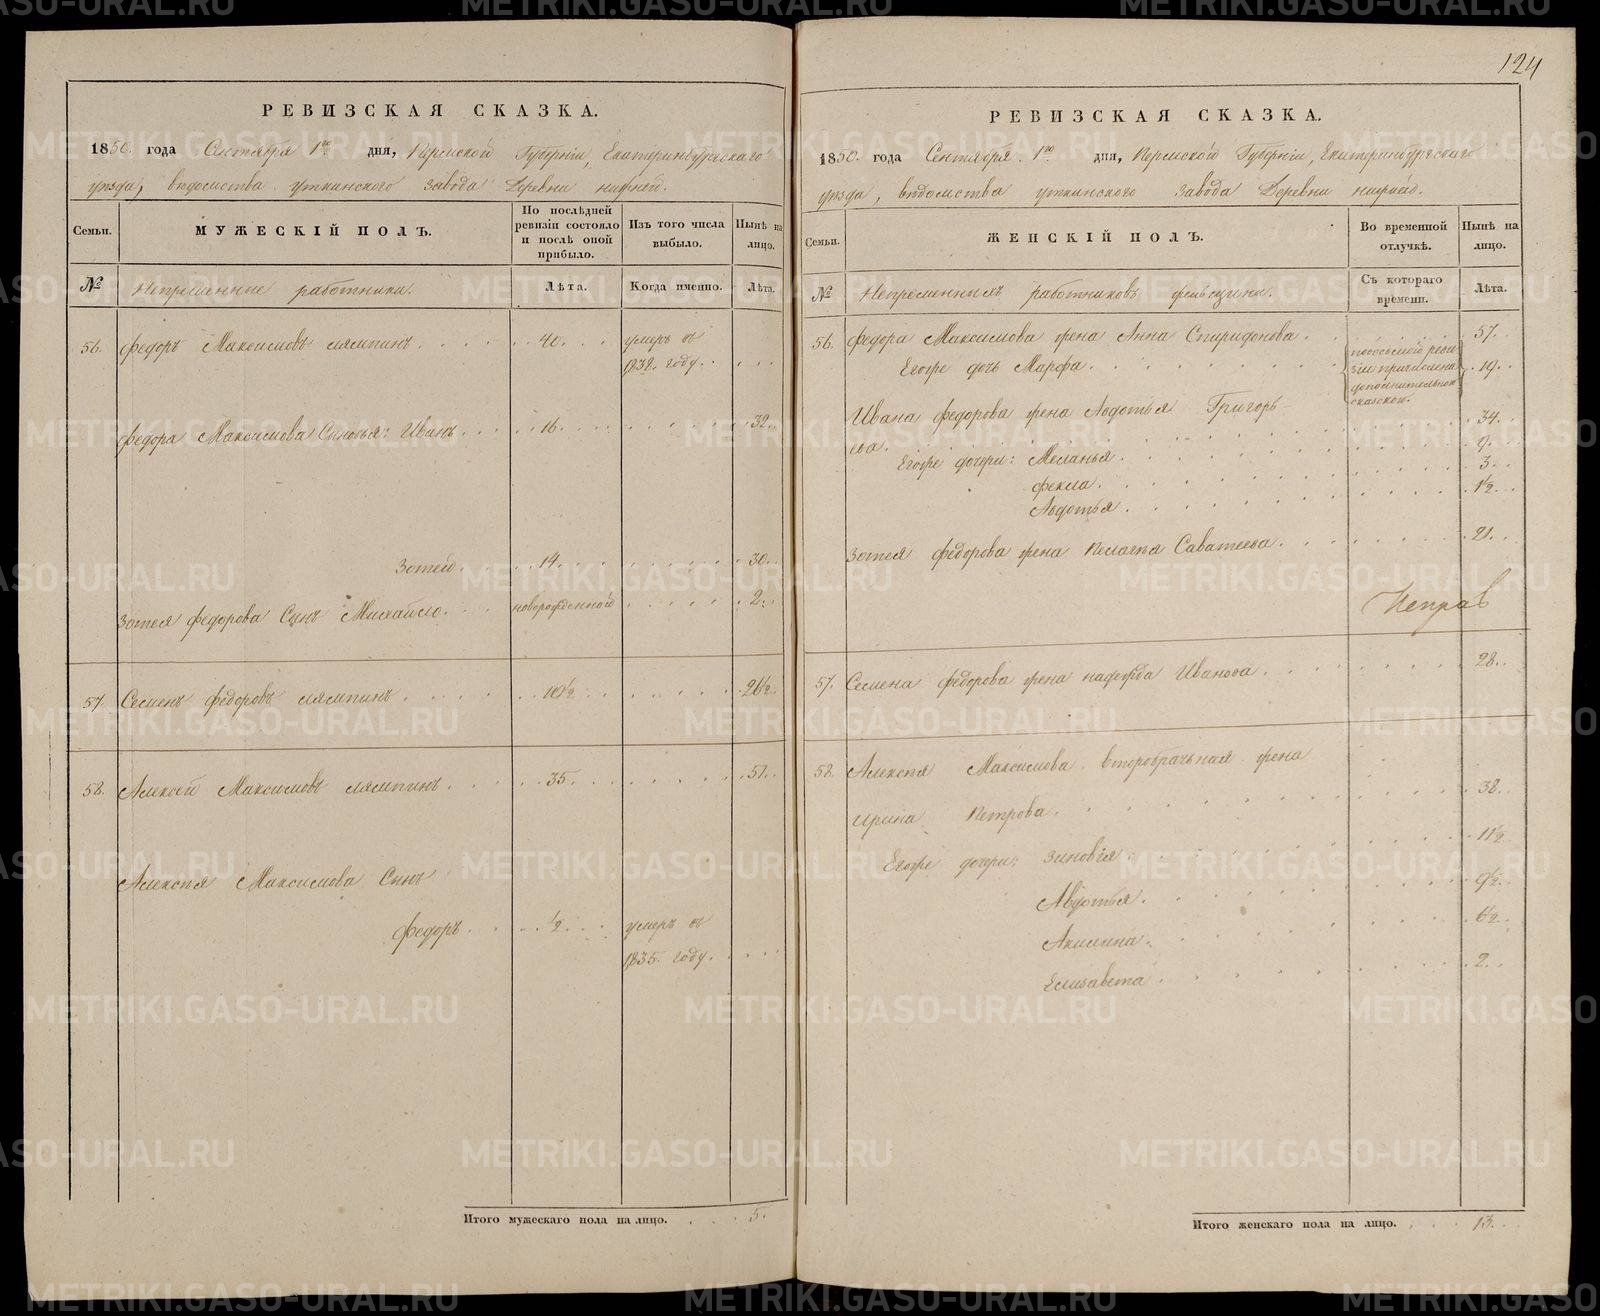 124
РЕВИЗСКАЯ СКАЗКА.
1850. года Сентября 1го дня, Пермской Губернiи, Екатеринбургскаго
уѣзда, вѣдомства уткинскаго завода Деревни нижней.
Семьи.
МУЖЕСКIЙ ПОЛЪ.
По послѣдней ревизiи состояло и послѣ оной прибыло.
Изъ того числа выбыло.
Нынѣ на лицо.
№
Непременные работники.
Лѣта.
Когда именно.
Лѣта.
56. Федоръ Максимовъ лямпинъ. 40. умеръ въ
1832. году.
Федора Максимова Сыновья: Иванъ. 16. 32.
Зотей. 14. 30.
Зотея Федорова Сынъ Михайло. новорожденной 2.
57. Семенъ Федоровъ лямпинъ 10½ 26½.
58. Алексей Максимовъ лямпинъ. 35. 51.
Алексѣя Максимова Сынъ
Федоръ. ½. умеръ въ
1835. году.
Итого мужескаго пола на лицо. 5.
РЕВИЗСКАЯ СКАЗКА.
1850. года Сентября. 1го дня, Пермской Губернiи, Екатеринбургскаго
уѣзда, вѣдомства уткинского завода Деревни нижней.
Семьи.
ЖЕНСКIЙ ПОЛЪ.
Во временной отлучкѣ.
Нынѣ на лицо.
№
Непременныхъ работниковъ женьщины.
Съ котораго времени.
Лѣта.
56. Федора Максимова жена Анна Спиридонова. 57.
Егоже дочь Марфа. 19.
по восьмой реви
зiи причислена
дополнительной
сказкой.
Ивана Федорова жена Авдотья Григорь
ева. 34.
Егоже дочери: Меланья. 9.
Фекла. 3.
Авдотья. 1½.
Зотея Федорова жена Пелагея Саватеева. 21.
57. Семена Федорова жена надежда Иванова. 28.
58. Алексѣя Максимова второбрачьная жена
Ирина Петрова. 38.
Егоже дочери: Зиновiя. 11½
Авдотья. 9½.
Акилина. 6½.
Елизавета. 2.
Итого женскаго пола на лицо. 13.
METRIKI.GASO-URAL.RU